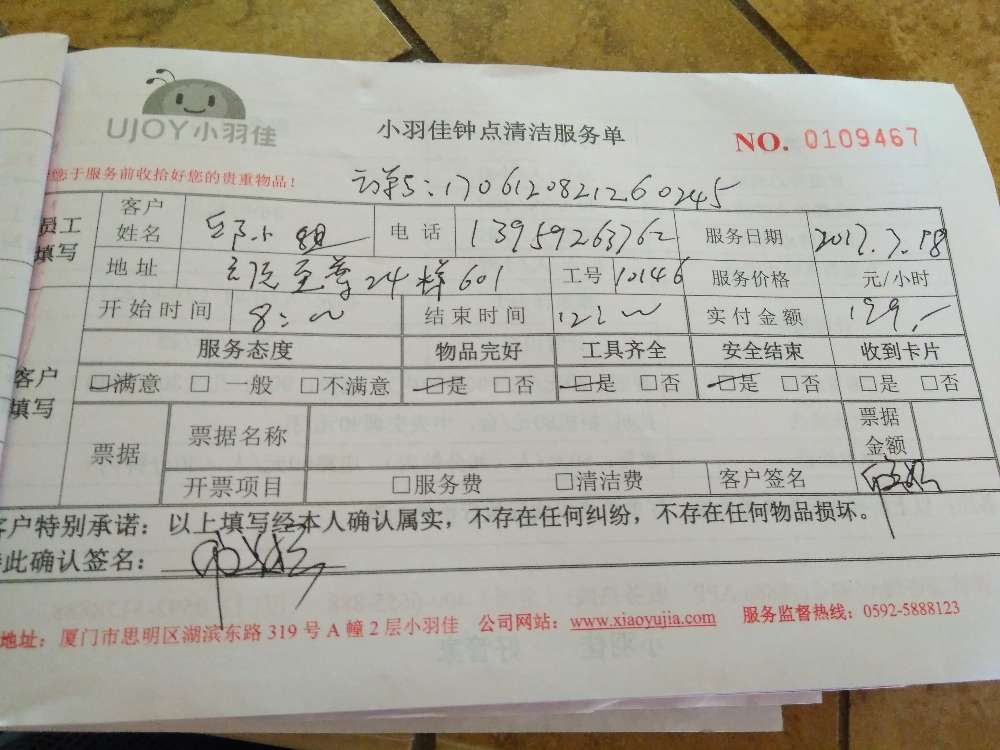 UJOY小羽佳
小羽佳钟点清洁服务单
NO. 0109467
您于服务前收拾好您的贵重物品!
订单号:170612082126 0245
员工填写 客户姓名 邱小姐 电话 13959263762 服务日期 2017.7.18
地址 24 601 工号 10146 服务价格 元/小时
客户填写 开始时间 8: 结束时间 12: 实付金额
服务态度 物品完好 工具齐全 安全结束 收到卡片
□满意 □一般 □不满意 □是 □否 □是 □否 □是 □否 □是 □否
票据 票据名称 票据金额
开票项目 □服务费 □清洁费 客户签名
客户特别承诺:以上填写经本人确认属实,不存在任何纠纷,不存在任何物品损坏。
此确认签名:
地址:厦门市思明区湖滨东路319号A幢2层小羽佳 公司网站:www.xiaoyujia.com 服务监督热线:0592-5888123